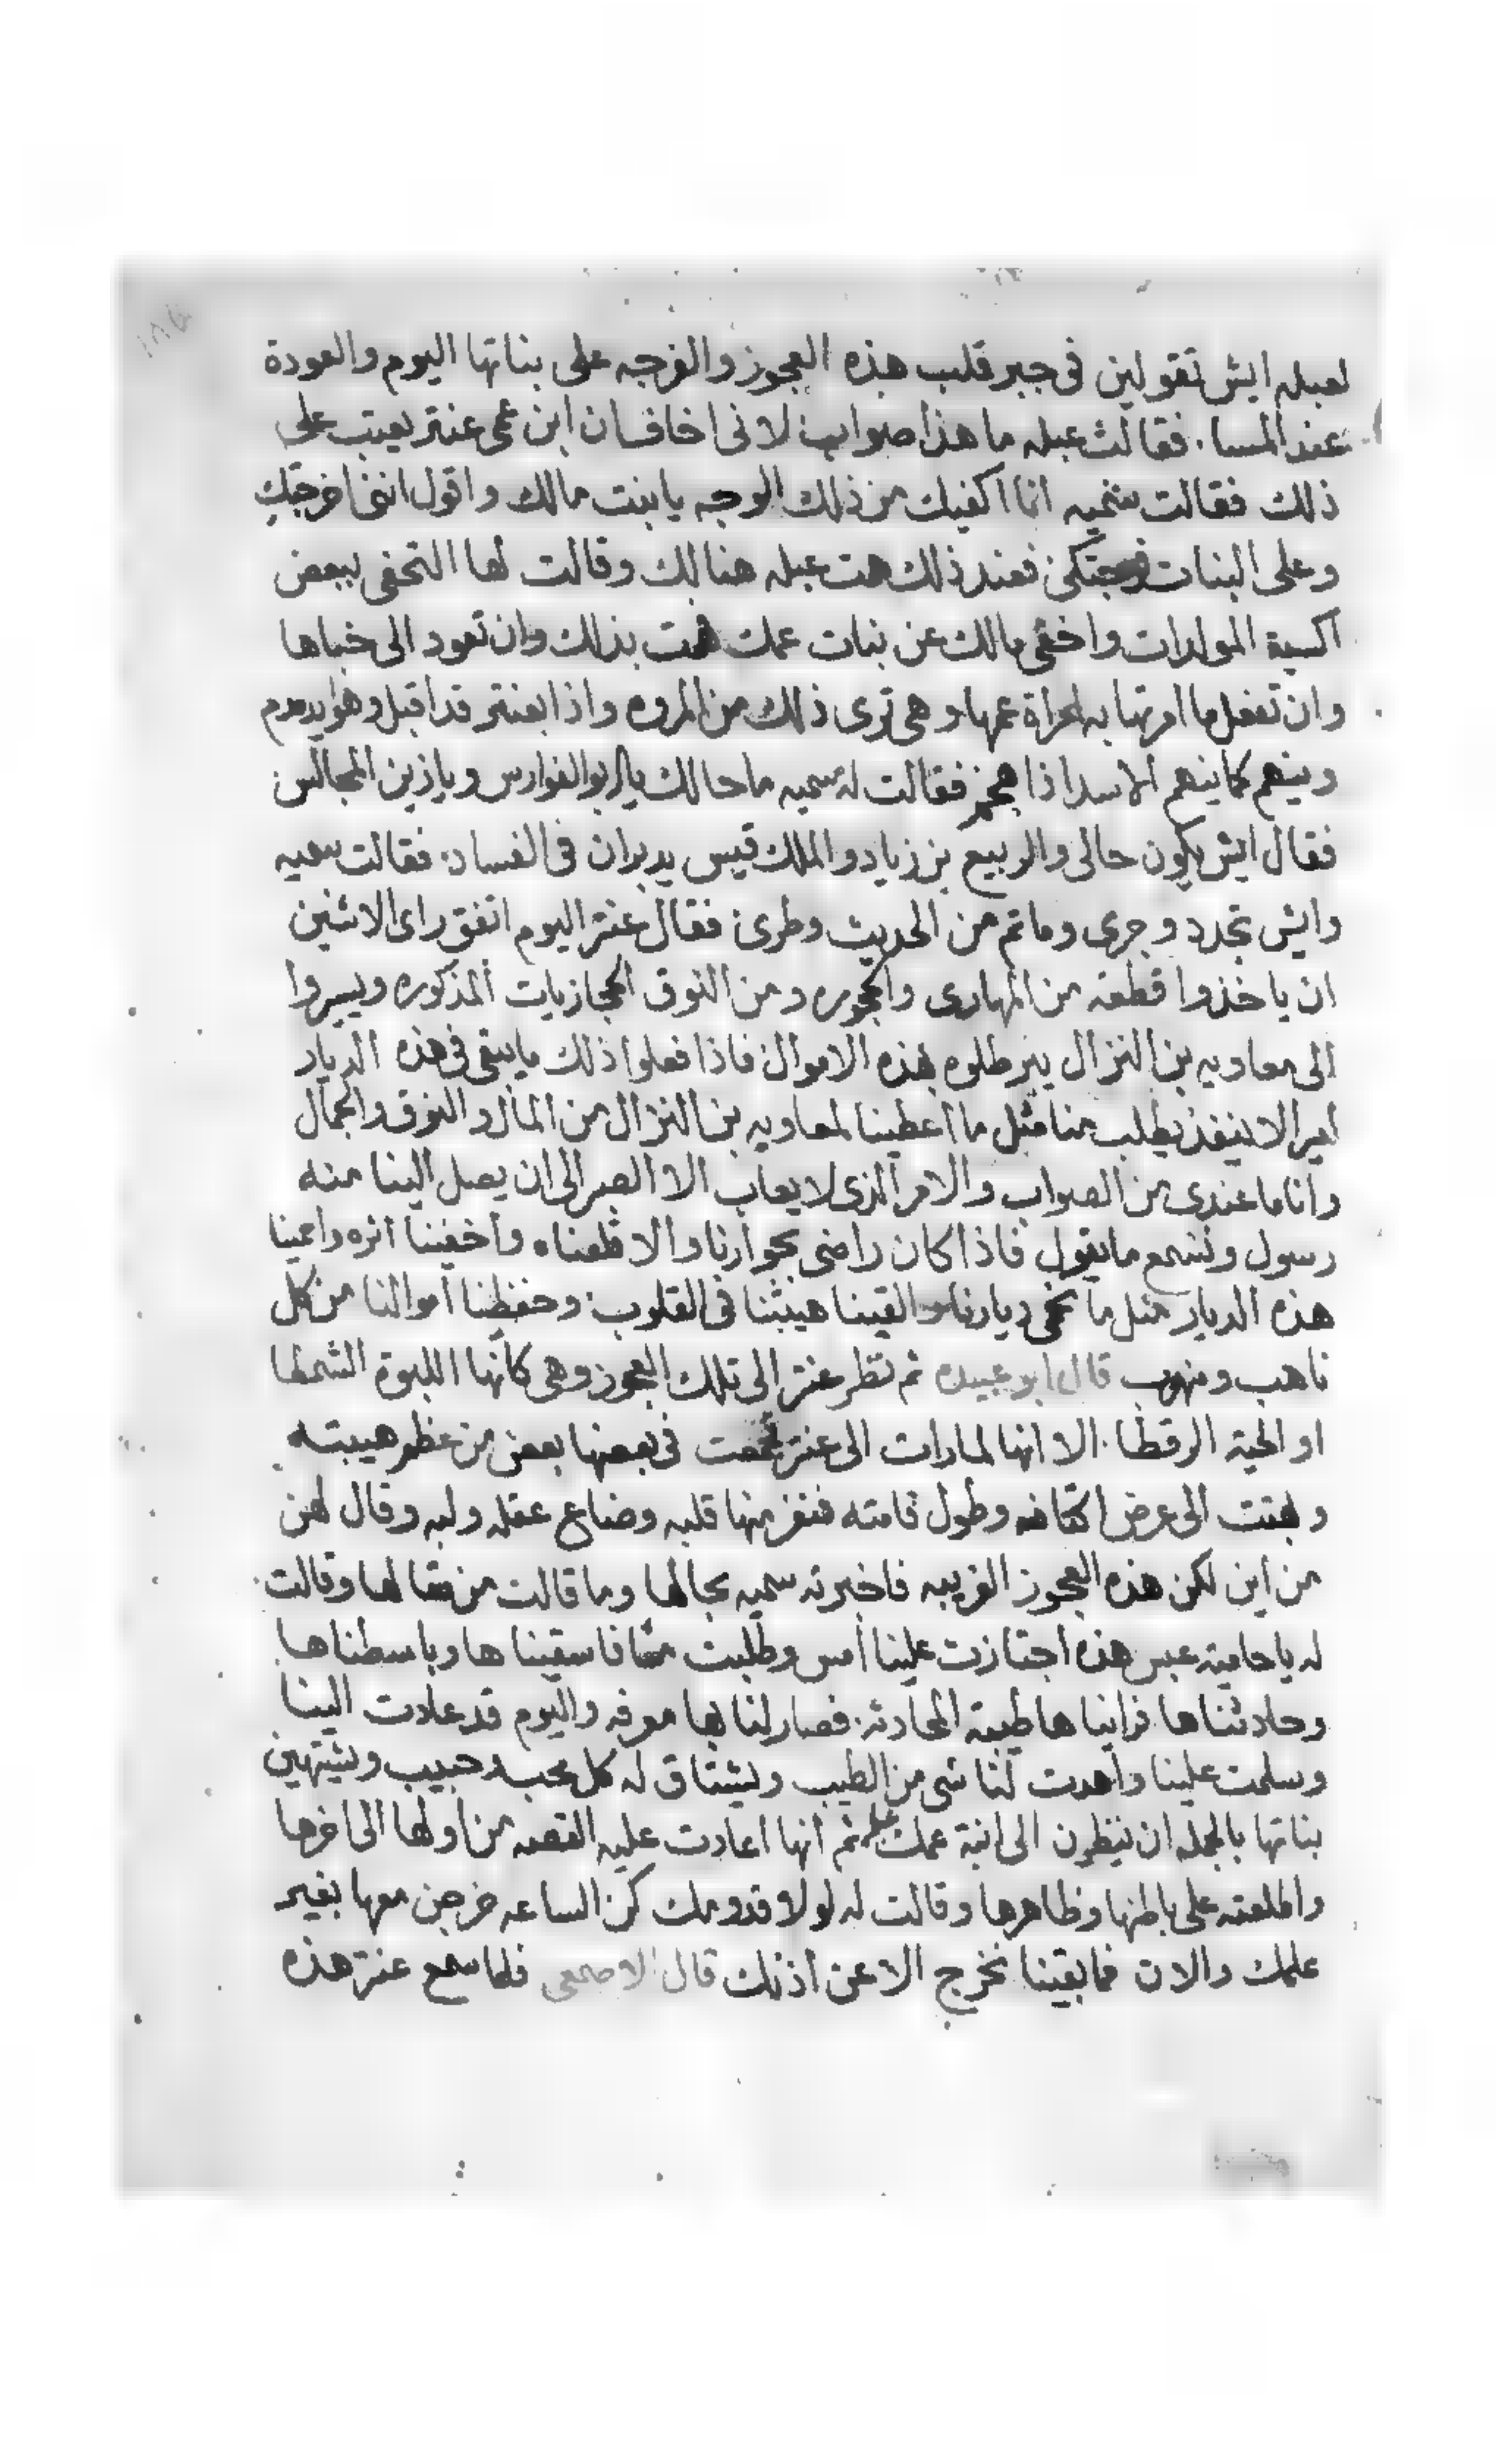 لعبله ايش تقولين فى جبر قلب هذه العجوز والفرجه على بناتها اليوم والعودة
عند المسا. فقالت عبله ما هذا صواب لانى اخاف ان ابن عمى عنتر يعيتب على
ذلك فقالت سميه انا اكفيك من ذلك الوجه يا بنت مالك واقول اننى اخرجتك
وعلى البنات فرجتكى فعند ذلك همت عبله هنالك وقالت لها التحفى ببعض
اكسية المولدات واخفى مالك عن بنات عمك همت بذلك وان تعود الى خباها
وان تفعل ما امرتها به امراة عمها وهى ترى ذلك من المروه واذا بعنتر قد اقبل وهو يدمدم
وينهم كما ينهم الاسد اذا همهم فقالت له سميه ما حالك يا ابو الفوارس ويا زين المجالس
فقال ايش يكون حالى والربيع بن زياد والملك قيس يدبران فى الفساد فقالت سميه
وايش تجدد وجرى وماتم من الحديث وطرى فقال عنتر اليوم اتفق راى الاثنين
ان ياخذوا قطعه من المهارى والحجوره ومن النوق الحجازيات المذكوره ويسيروا
الى معاويه بن النزال يبرطلوه بهذه الاموال فاذا فعلوا ذلك ما يبقى فى هذه الديار
امير الا ينفذ يطلب منا مثل ما اعطينا لمعاويه بن النزال من المال والنوق والجمال
وانا ما عندى من الصواب والامر الذى لا يعاب الا الصبر الى ان يصل الينا منه
رسول ونسمع ما يقول فاذا كان راضى بجوارنا والا قلعناه واخفينا اثره واحمينا
هذه الديار مثل ما نحمى ديارنا والقينا هيبتنا فى القلوب وحفظنا اموالنا من كل
ناهب ومنهوب قال ابو عبيده ثم نظر عنتر الى تلك العجوز وهى كانها اللبوة الشمطا
او الحية الرقطا. الا انها لما رات الى عنتر تخت فى بعضها بعض من عظم هيبته
وبهتت الى عرض اكتافه وطول قامته فنفر منها قلبه وضاع عقله ولبه وقال لهن
من اين لكن هذه العجوز الغريبه فاخبرته سميه بحالها وما قالت من مقالها وقالت
له يا حامية عبس هذه اجتازت علينا امس وطلبت منا ماء فاسقيناها وباسطناها
وحادثناها فرايناها طيبة المحادثه. فصار لنا بها معرفه واليوم قد عادت الينا
وسلمت علينا واهدت لنا شى من الطيب ويشتاق له كل محب وحبيب ويشتهين
بناتها بالجمله ان ينظرن الى ابنة عمك عبله ثم انها اعادت عليه القصه من اولها الى اخرها
واطلعته على باطنها وظاهرها وقالت له لولا قدومك كن الساعه خرجن معها بغير
علمك والان فما بقينا نخرج الا عن اذنك قال الاصمعى فلما سمع عنتر هذه